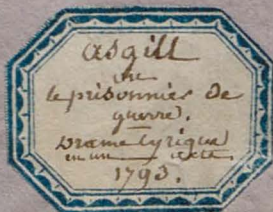 asgill
ou
le prisonnier de
guerre.
Drame lyrique
en un acte
1793.